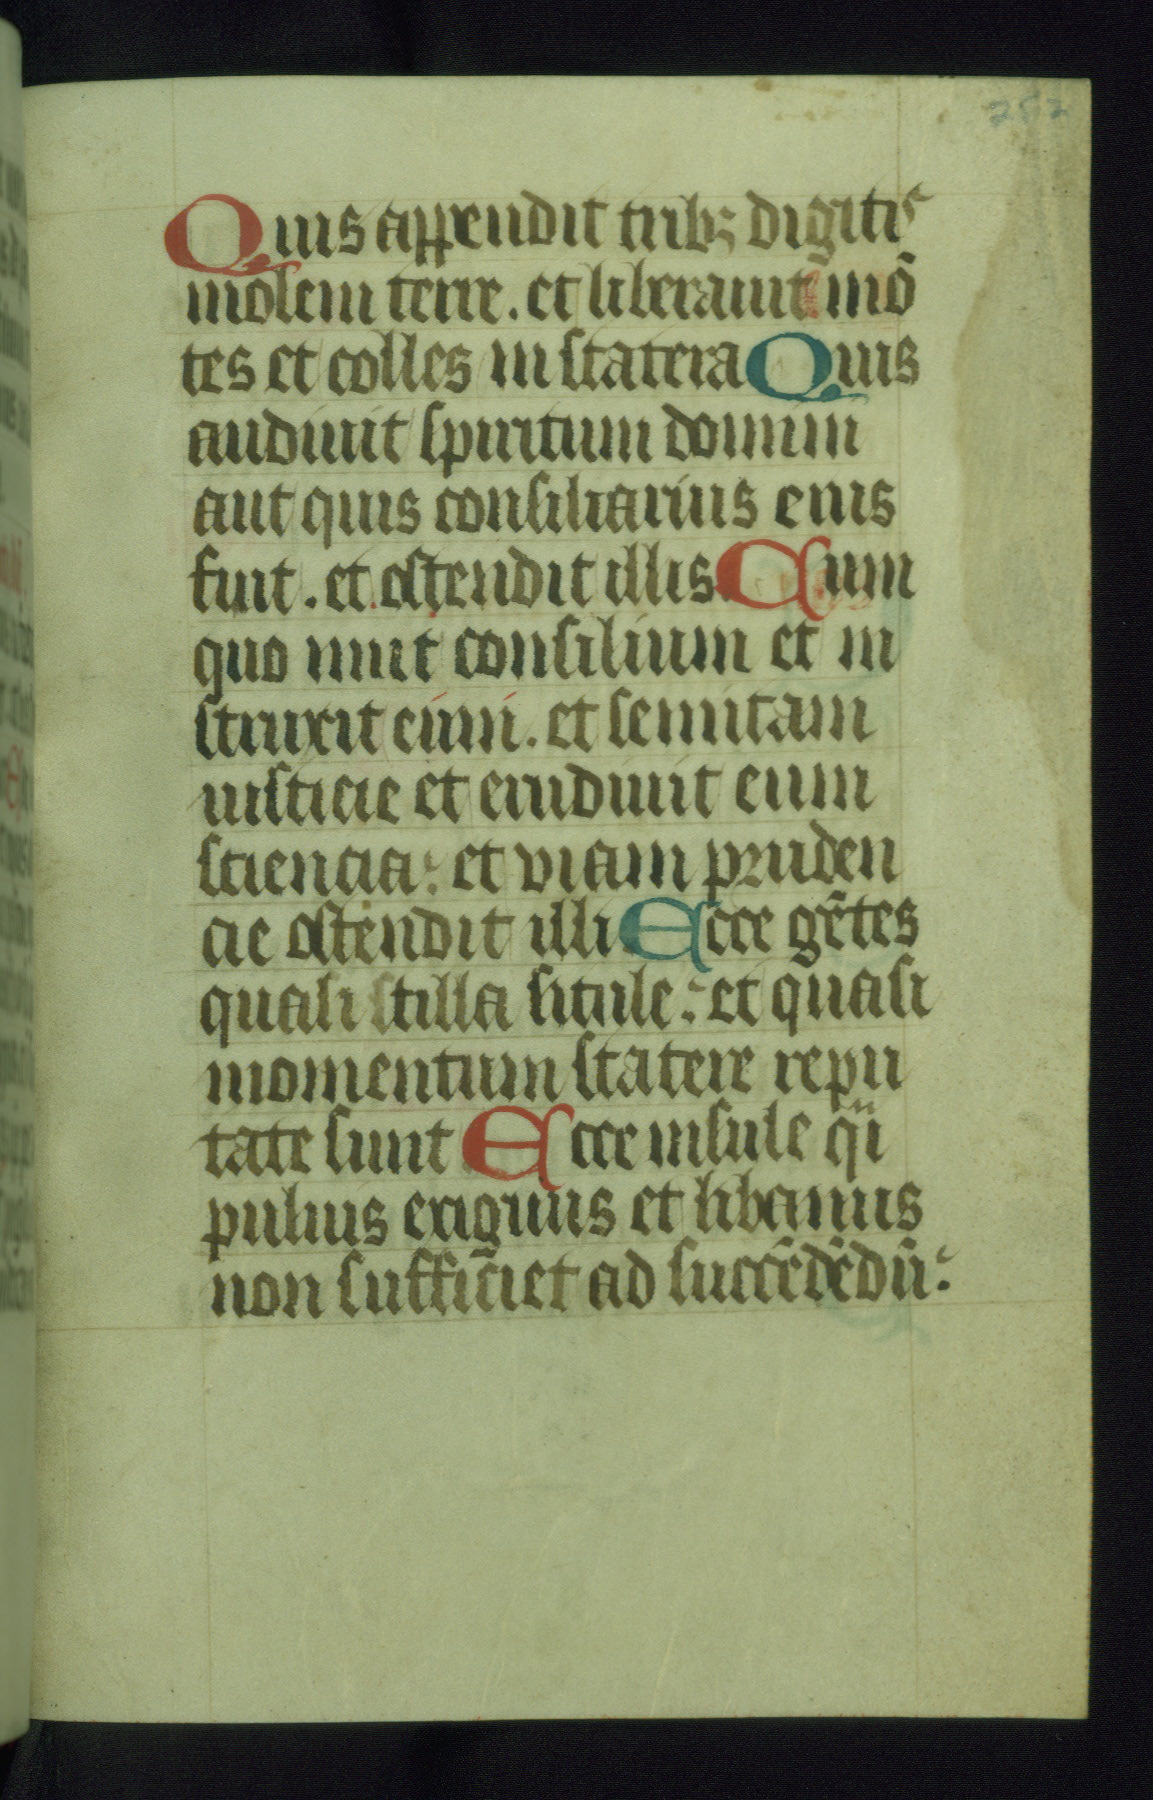 252
Quis appendit tribꝫ digitis
molem terre. et liberauit mō
tes et colles in statera Quis
audiuit spiritum domini
aut quis consiliarius eius
fuit. et ostendit illis. Cum
quo iniit consilium et in
struxit eum. et semitam
iusticie et erudiuit eum
sciencia: et viam pruden
cie ostendit illi Ecce gētes
quasi stilla situle: et quasi
momentum statere repu
tate sunt Ecce insule qͥi
puluis exiguus et libanus
non sufficiet ad succēdēdū: